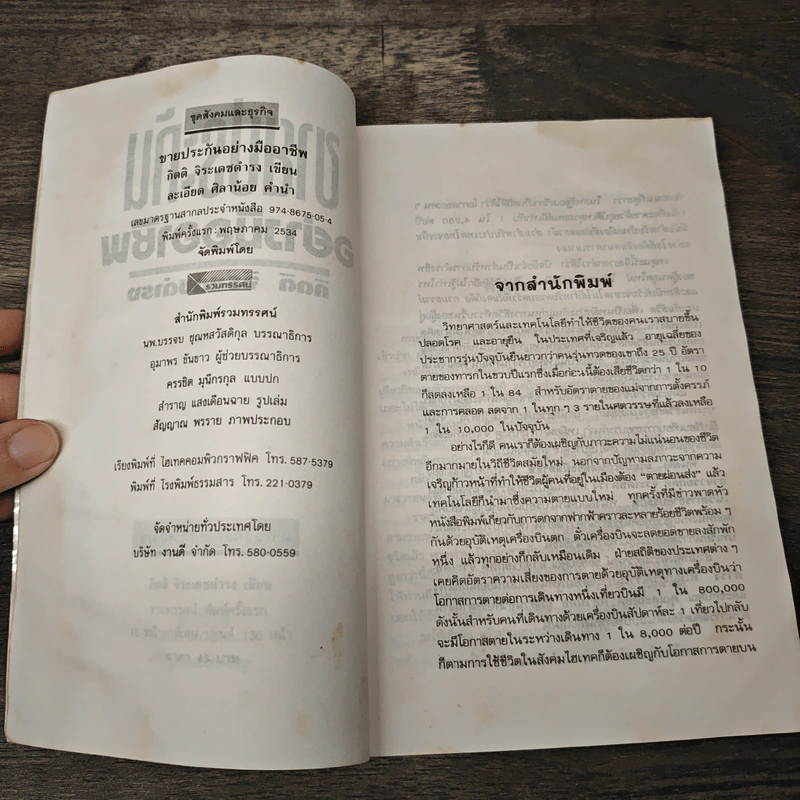 ชุดสังคมและธุรกิจ
ขายประกันอย่างมืออาชีพ
กิตติ จิระเดชดำรง เขียน
ละเอียด ศิลาน้อย คำนำ
เลขมาตรฐานสากลประจำหนังสือ 974-8675-05-4
พิมพ์ครั้งแรก: พฤษภาคม 2534
จัดพิมพ์โดย
รวมทรรศน์
สำนักพิมพ์รวมทรรศน์
นพ.บรรจบ ชุณหสวัสดิกุล บรรณาธิการ
อุมาพร ขันขาว ผู้ช่วยบรรณาธิการ
ครรชิต มุนีกรกุล แบบปก
สำราญ แสงเดือนฉาย รูปเล่ม
สัญญาณ พรราย ภาพประกอบ
เรียงพิมพ์ที่ ไฮเทคคอมพิวกราฟฟิค โทร. 587-5379
พิมพ์ที่ โรงพิมพ์ธรรมสาร โทร. 221-0379
จัดจำหน่ายทั่วประเทศโดย
บริษัท งานดี จำกัด โทร. 580-0559
จากสำนักพิมพ์
วิทยาศาสตร์และเทคโนโลยีทำให้ชีวิตของคนเราสบายขึ้น
ปลอดโรค และอายุยืน ในประเทศที่เจริญแล้ว อายุเฉลี่ยของ
ประชากรรุ่นปัจจุบันยืนยาวกว่าคนรุ่นทวดของเขาถึง 25 ปี อัตรา
ตายของทารกในขวบปีแรกซึ่งเมื่อก่อนนี้ต้องเสียชีวิตกว่า 1 ใน 10
ก็ลดลงเหลือ 1 ใน 84 สำหรับอัตราตายของแม่จากการตั้งครรภ์
และการคลอด ลดจาก 1 ในทุก ๆ 3 รายในศตวรรษที่แล้วลงเหลือ
1 ใน 10,000 ในปัจจุบัน
อย่างไรก็ดี คนเราก็ต้องเผชิญกับภาวะความไม่แน่นอนของชีวิต
อีกมากมายในวิถีชีวิตสมัยใหม่ นอกจากปัญหามลภาวะจากความ
เจริญก้าวหน้าที่ทำให้ชีวิตผู้คนที่อยู่ในเมืองต้อง "ตายผ่อนส่ง" แล้ว
เทคโนโลยีก็นำมาซึ่งความตายแบบใหม่ ทุกครั้งที่มีข่าวพาดหัว
หนังสือพิมพ์เกี่ยวกับการตกจากฟากฟ้าคราวละหลายร้อยชีวิตพร้อม ๆ
กันด้วยอุบัติเหตุเครื่องบินตก ตั๋วเครื่องบินจะลดยอดขายลงสักพัก
หนึ่ง แล้วทุกอย่างก็กลับเหมือนเดิม ฝ่ายสถิติของประเทศต่าง ๆ
เคยคิดอัตราความเสี่ยงของการตายด้วยอุบัติเหตุทางเครื่องบินว่า
โอกาสการตายต่อการเดินทางหนึ่งเที่ยวบินมี 1 ใน 800,000
ดังนั้นสำหรับคนที่เดินทางด้วยเครื่องบินสัปดาห์ละ 1 เที่ยวไปกลับ
จะมีโอกาสตายในระหว่างเดินทาง 1 ใน 8,000 ต่อปี กระนั้น
ก็ตามการใช้ชีวิตในสังคมไฮเทคก็ต้องเผชิญกับโอกาสการตายบน